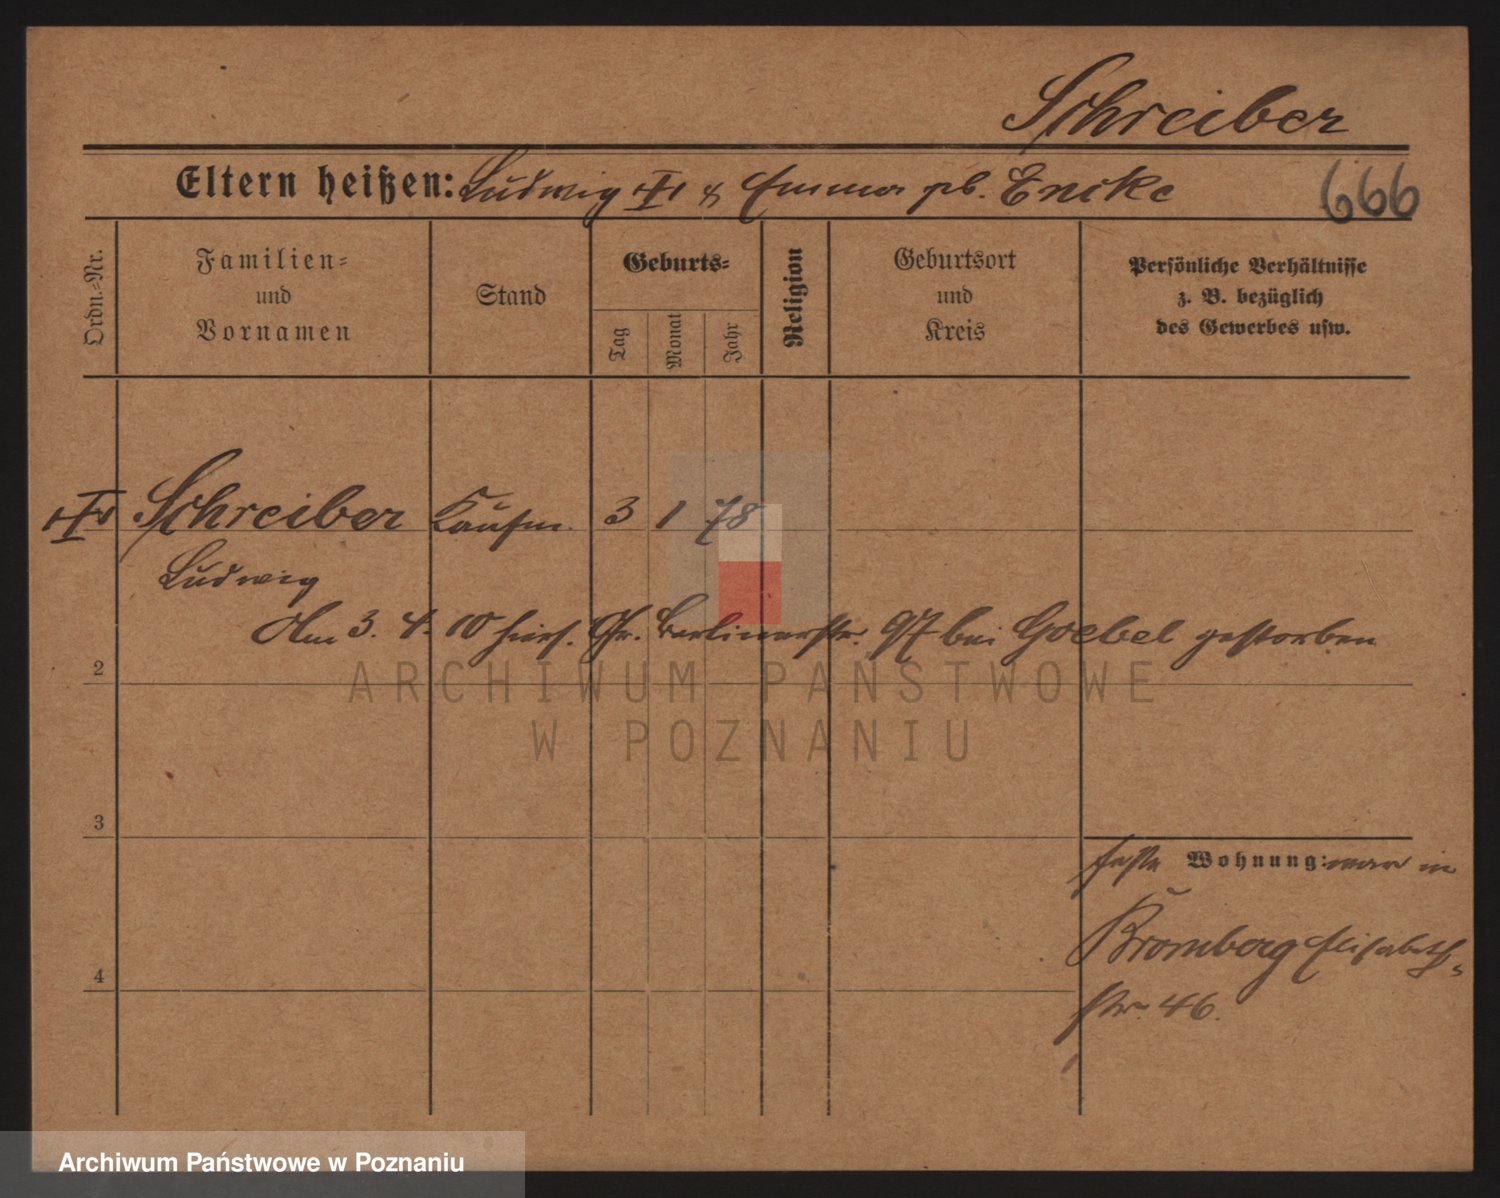 Schreiber
Eltern heißen: Ludwig † & Emma geb. Encke
666
Ordn.-Nr.
Familien-
und
Vornamen
Stand
Geburts-
Tag
Monat
Jahr
Religion
Geburtsort
und
Kreis
Persönliche Verhältnisse
z. B. bezüglich
des Gewerbes usw.
† Schreiber Kaufm. 3 1 78
Ludwig
Am 3. 4. 10 hies. Gr. Berlinerstr. 97 bei Goebel gestorben
2
ARCHIWUM PAŃSTWOWE
W POZNANIU
3
feste Wohnung: war in
4
Bromberg Elisabeth-
str. 46.
Archiwum Państwowe w Poznaniu